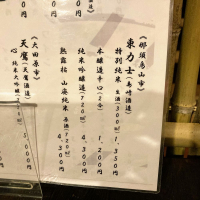 円
《那須烏山市》
東力士(島崎酒造)
特別純米 生酒(300㎖) 1,350円
本醸造辛口(2合) 1,200円
純米吟醸(720㎖) 4,300円
熟露枯 山廃純米 原酒(720㎖) 4,300円
《大田原市》
天鷹(天鷹酒造)
心 純米大吟醸